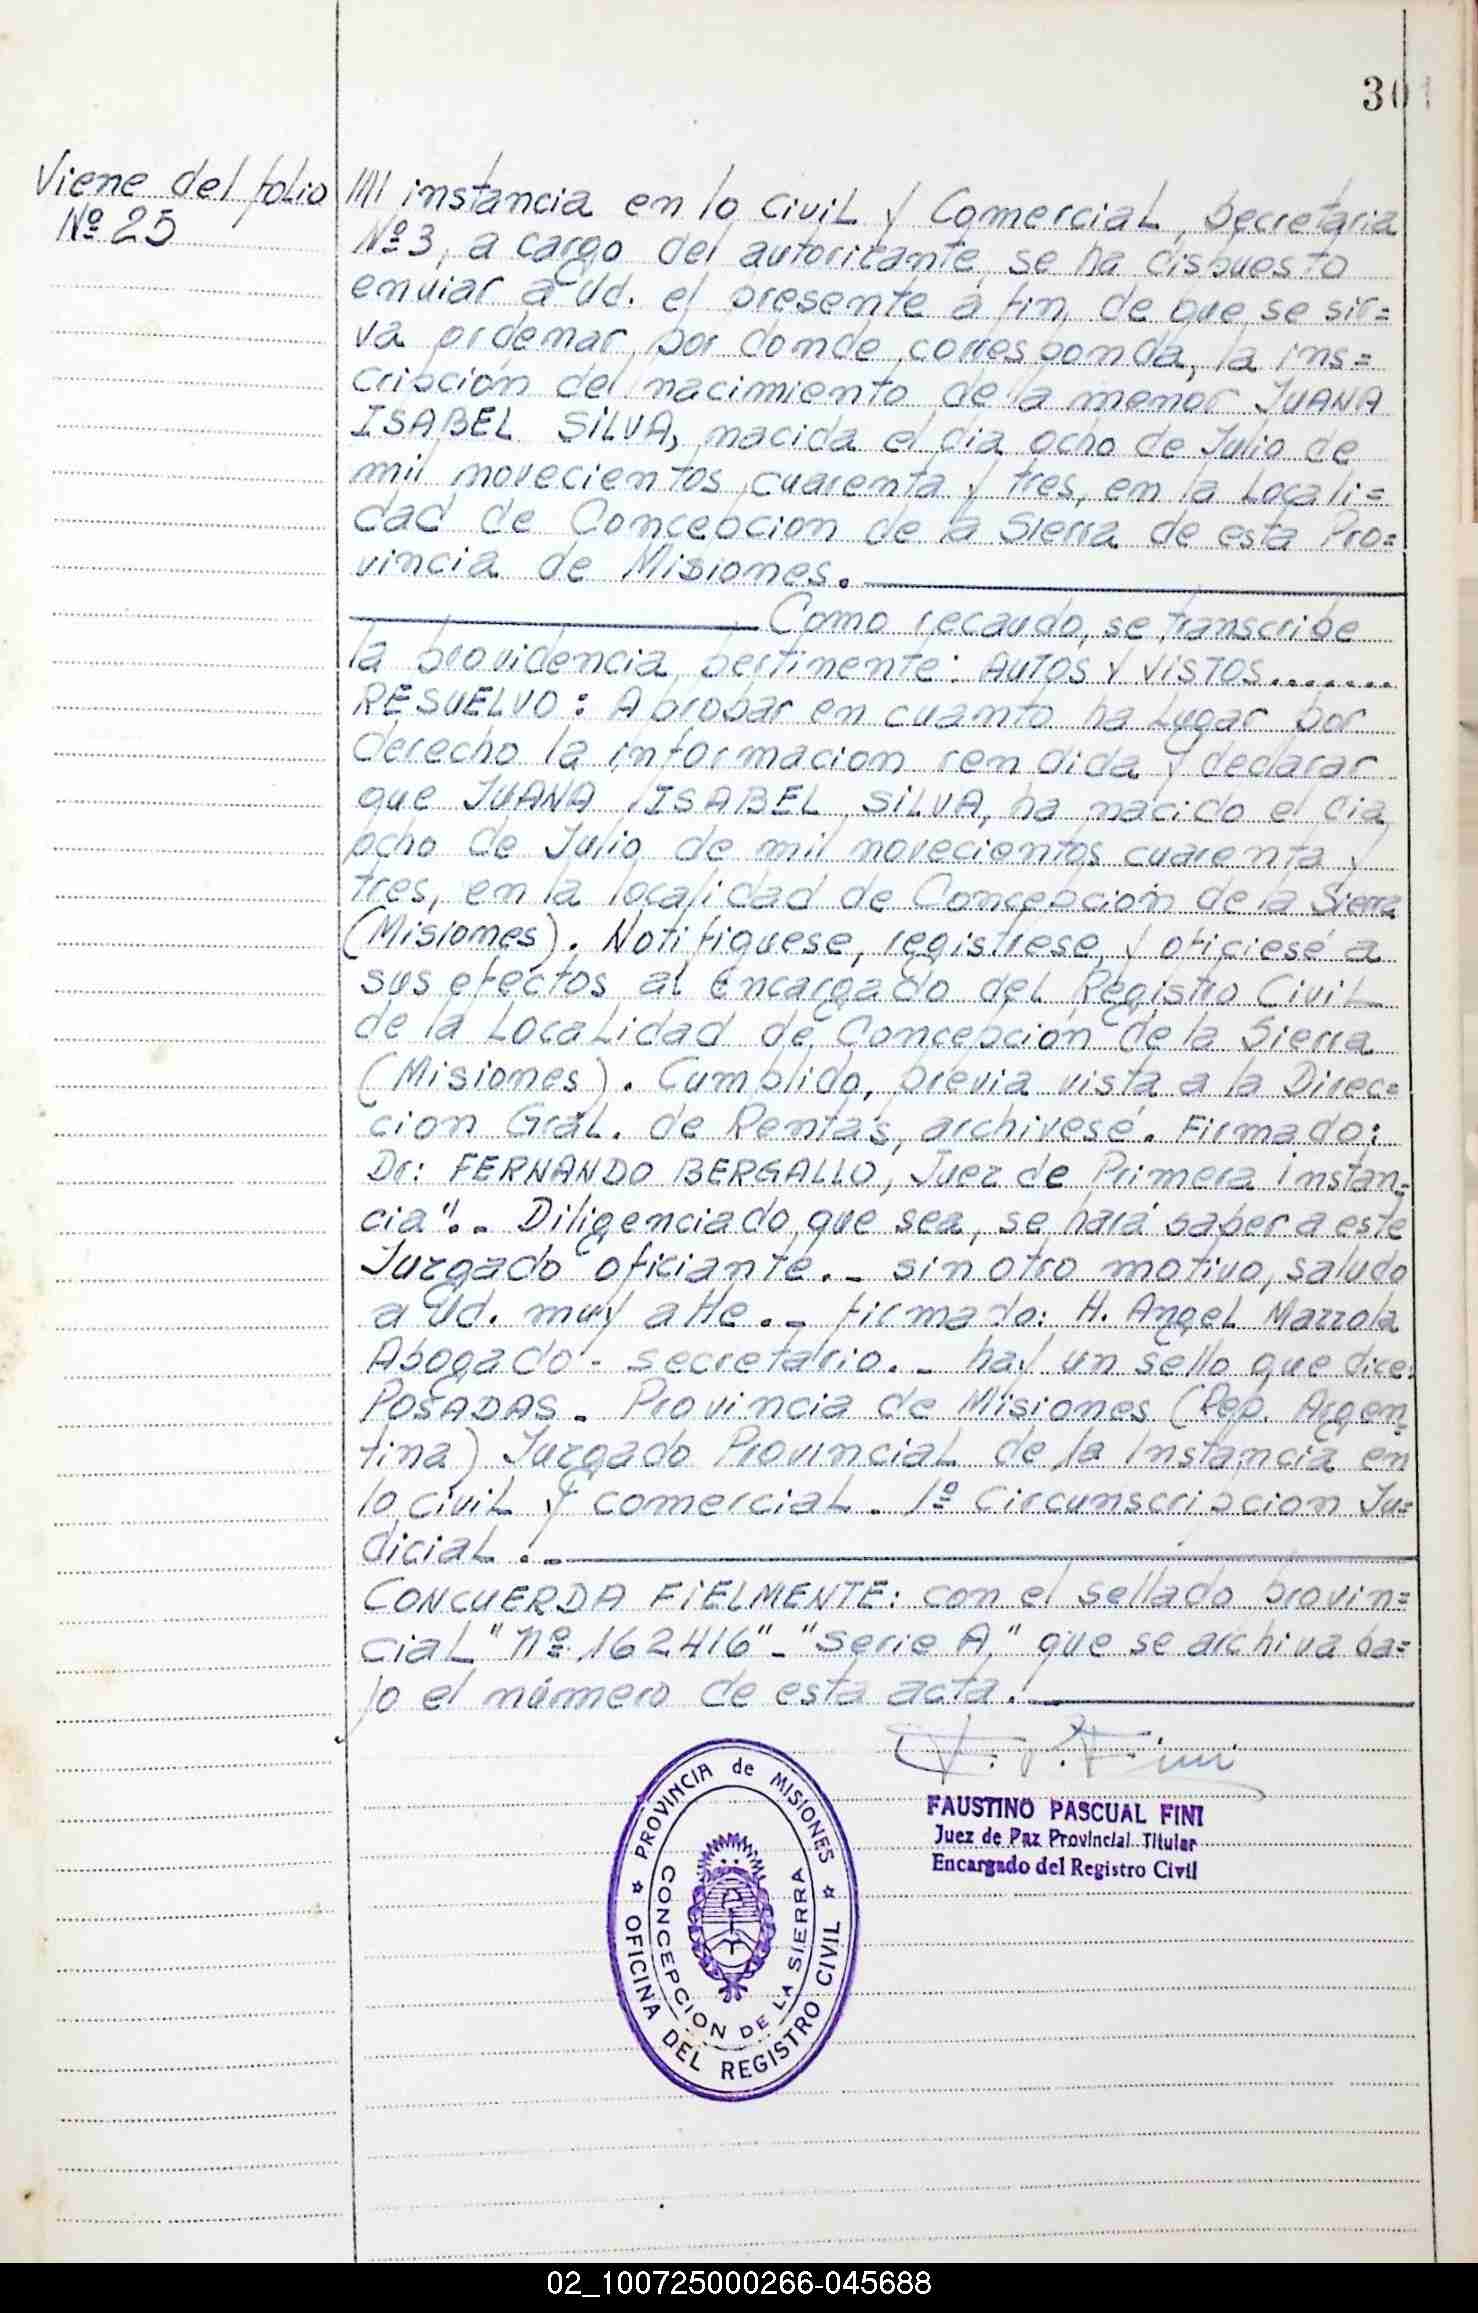 301
Viene del folio
Nº 25
//// instancia en lo Civil y Comercial, Secretaria
Nº 3, a cargo del autorizante, se ha dispuesto
enviar a Ud. el presente a fin, de que se sir=
va ordenar, por donde corresponda, la ins=
cripción del nacimiento de la menor JUANA
ISABEL SILVA, nacida el dia ocho de Julio de
mil novecientos cuarenta y tres, en la Locali=
dad de Concepcion de la Sierra de esta Pro=
vincia de Misiones.
Como recaudo, se transcribe
la providencia pertinente: AUTOS Y VISTOS........
RESUELVO: Aprobar en cuanto ha Lugar por
derecho la informacion rendida y declarar
que JUANA ISABEL SILVA, ha nacido el dia
ocho de Julio de mil novecientos cuarenta y
tres, en la localidad de Concepción de la Sierra
(Misiones). Notifiquese, registrese, y oficiesé a
sus efectos al Encargado del Registro Civil
de la Localidad de Concepción de la Sierra
(Misiones). Cumplido, previa vista a la Direc=
cion Gral. de Rentas, archivesé. Firmado:
Dr: FERNANDO BERGALLO, Juez de Primera instan-
cia".- Diligenciado que sea, se hará saber a este
Juzgado oficiante.- sin otro motivo, saludo
a Ud. muy atte.- firmado: H. Angel Marzola
Abogado - secretario.- hay un sello que dice:
POSADAS - Provincia de Misiones (Rep. Argen-
tina) Juzgado Provincial de 1a Instancia en
lo civil y comercial. 1º Circunscripcion Ju=
dicial.-
CONCUERDA FIELMENTE: con el sellado provin=
cial "Nº 162416" - "Serie A," que se archiva ba=
jo el número de esta acta.
F. P. Fini
FAUSTINO PASCUAL FINI
Juez de Paz Provincial Titular
Encargado del Registro Civil
PROVINCIA de MISIONES
CONCEPCION DE LA SIERRA
OFICINA DEL REGISTRO CIVIL
02_100725000266-045688